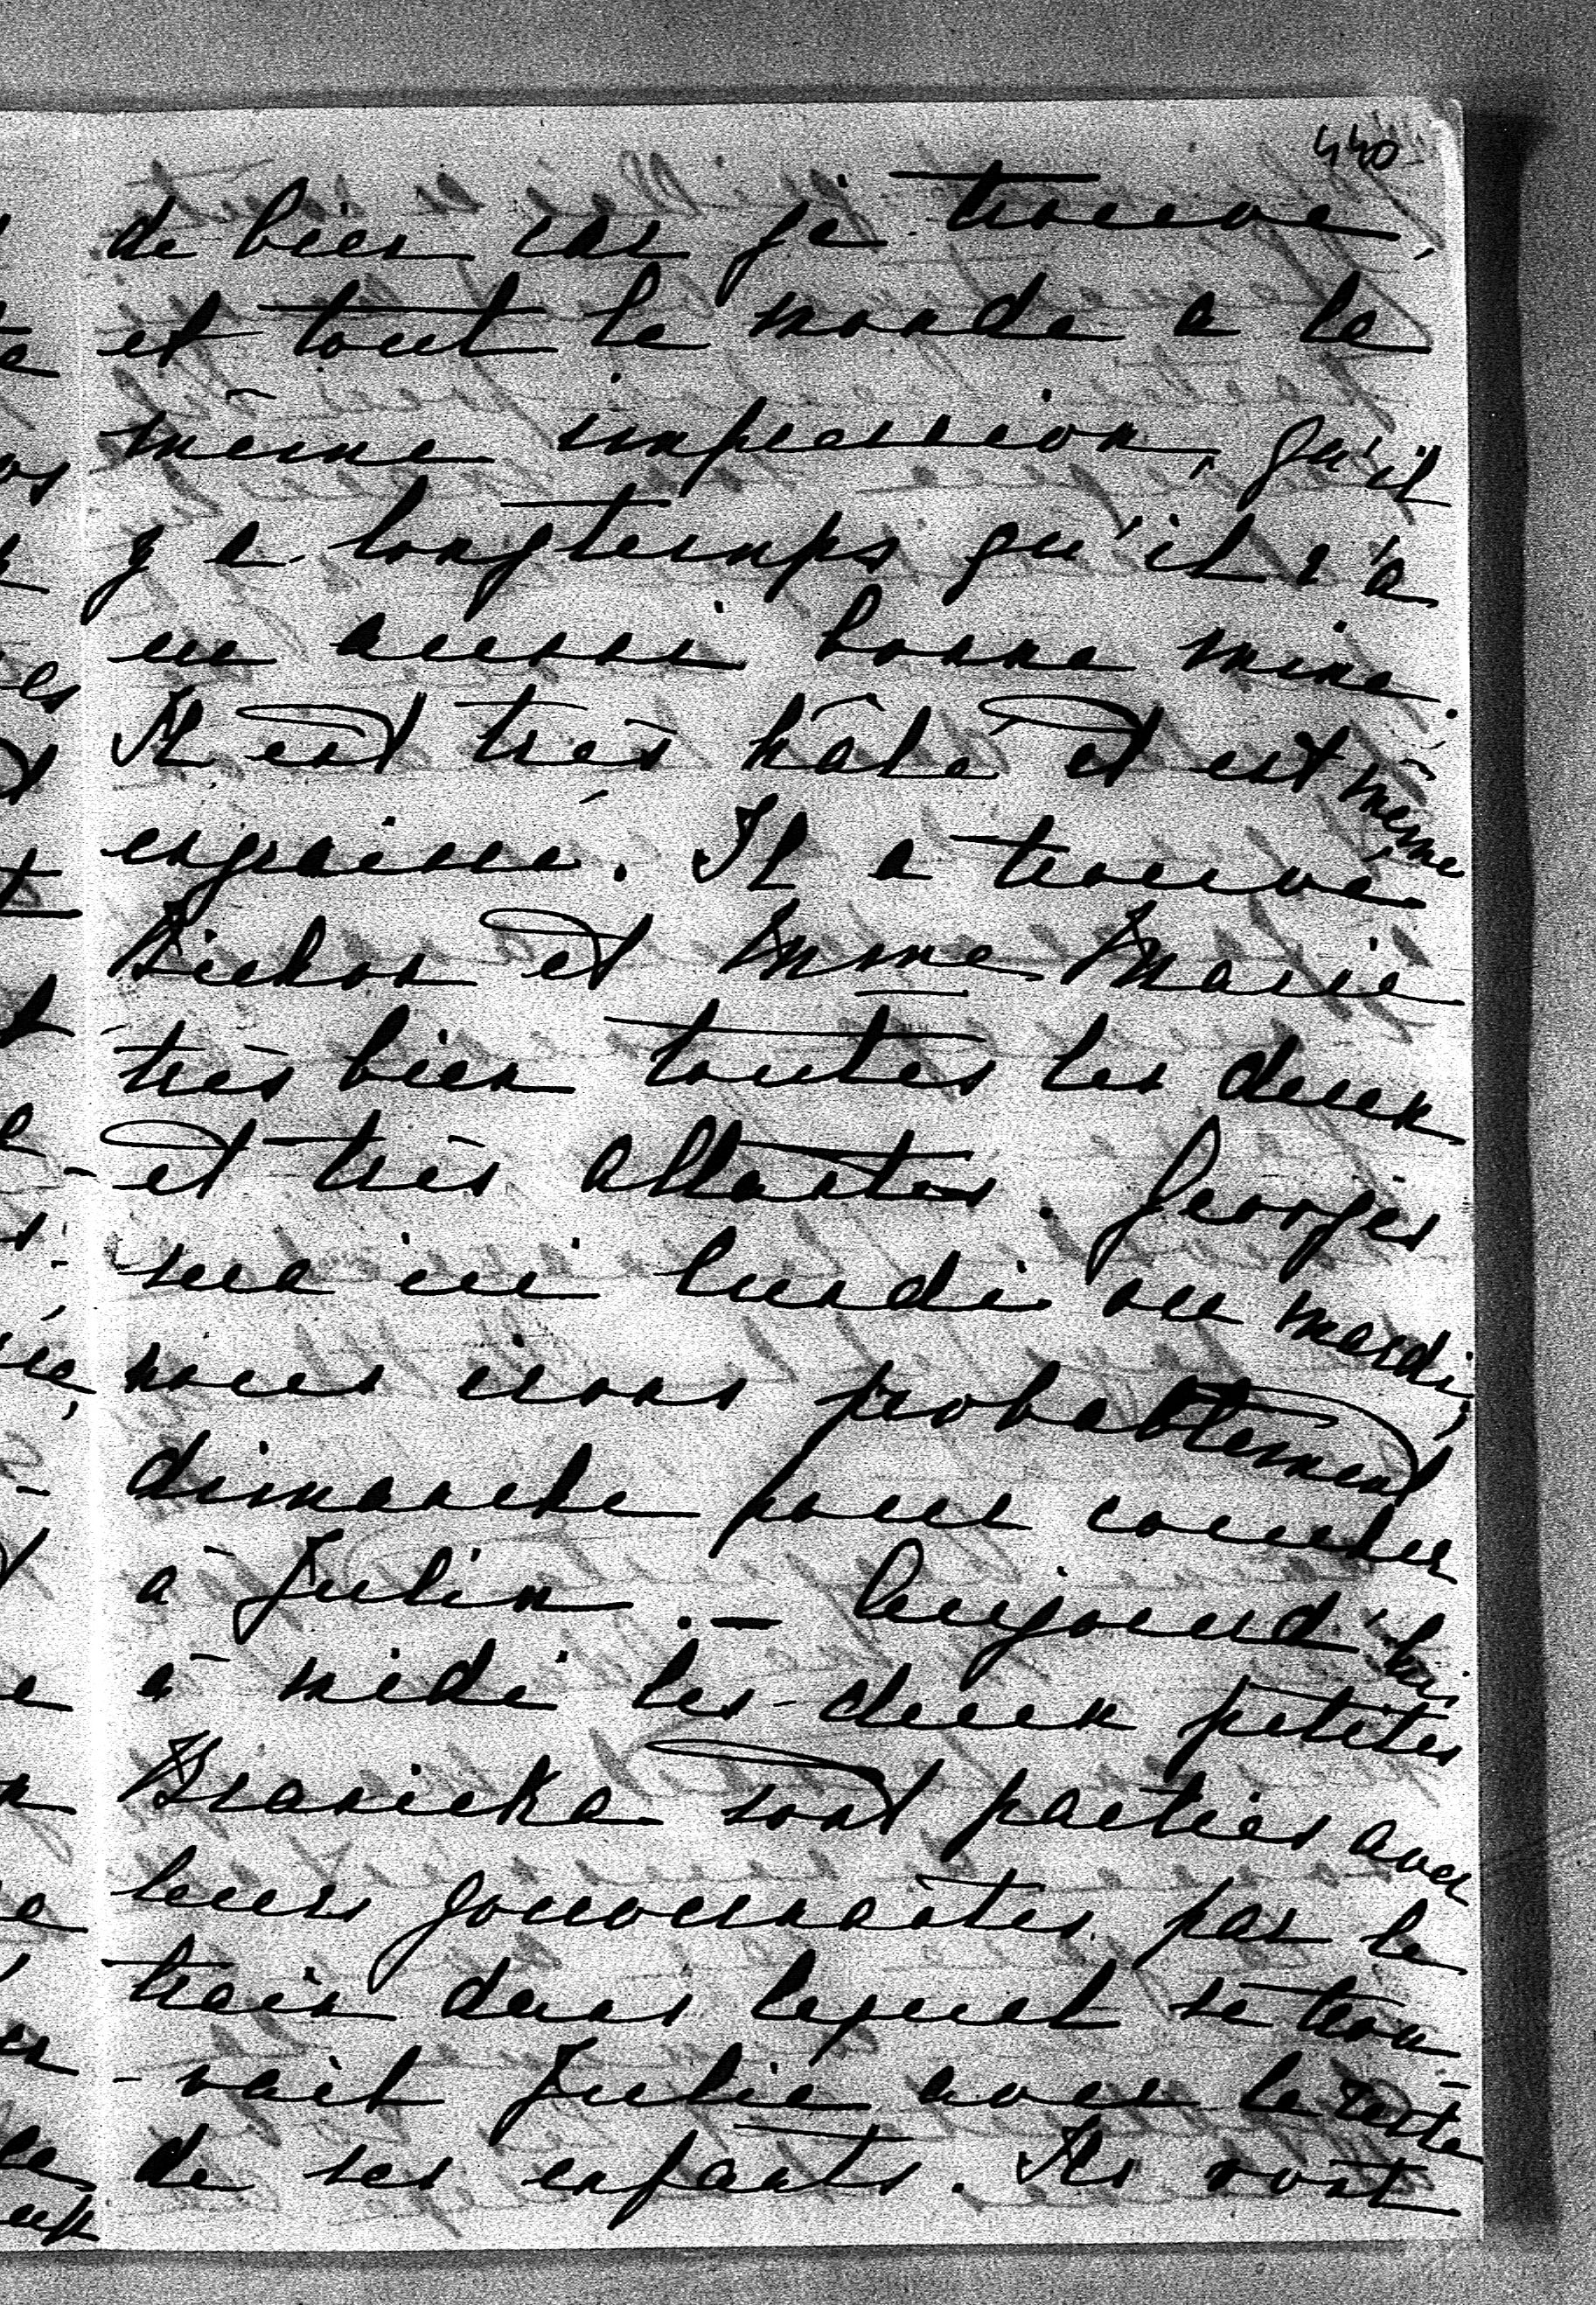 440
de bien car je trouve,
et tout le monde a la
même impression, qu'il
y a longtemps qu'il n'a
eu aussi bonne mine.
Il est très hâlé et est même
engraissé. Il a trouvé
et Mme Marie
très bien toutes les deux
et très allantes. Georges
sera ici lundi ou mardi;
nous irons probablement
dimanche pour coucher
à Julin. — Aujourd'hui
à midi les deux petites
Branicka sont parties avec
leurs gouvernantes par le
train dans lequel se trou-
-vait Julie avec le reste
de ses enfants. Ils vont